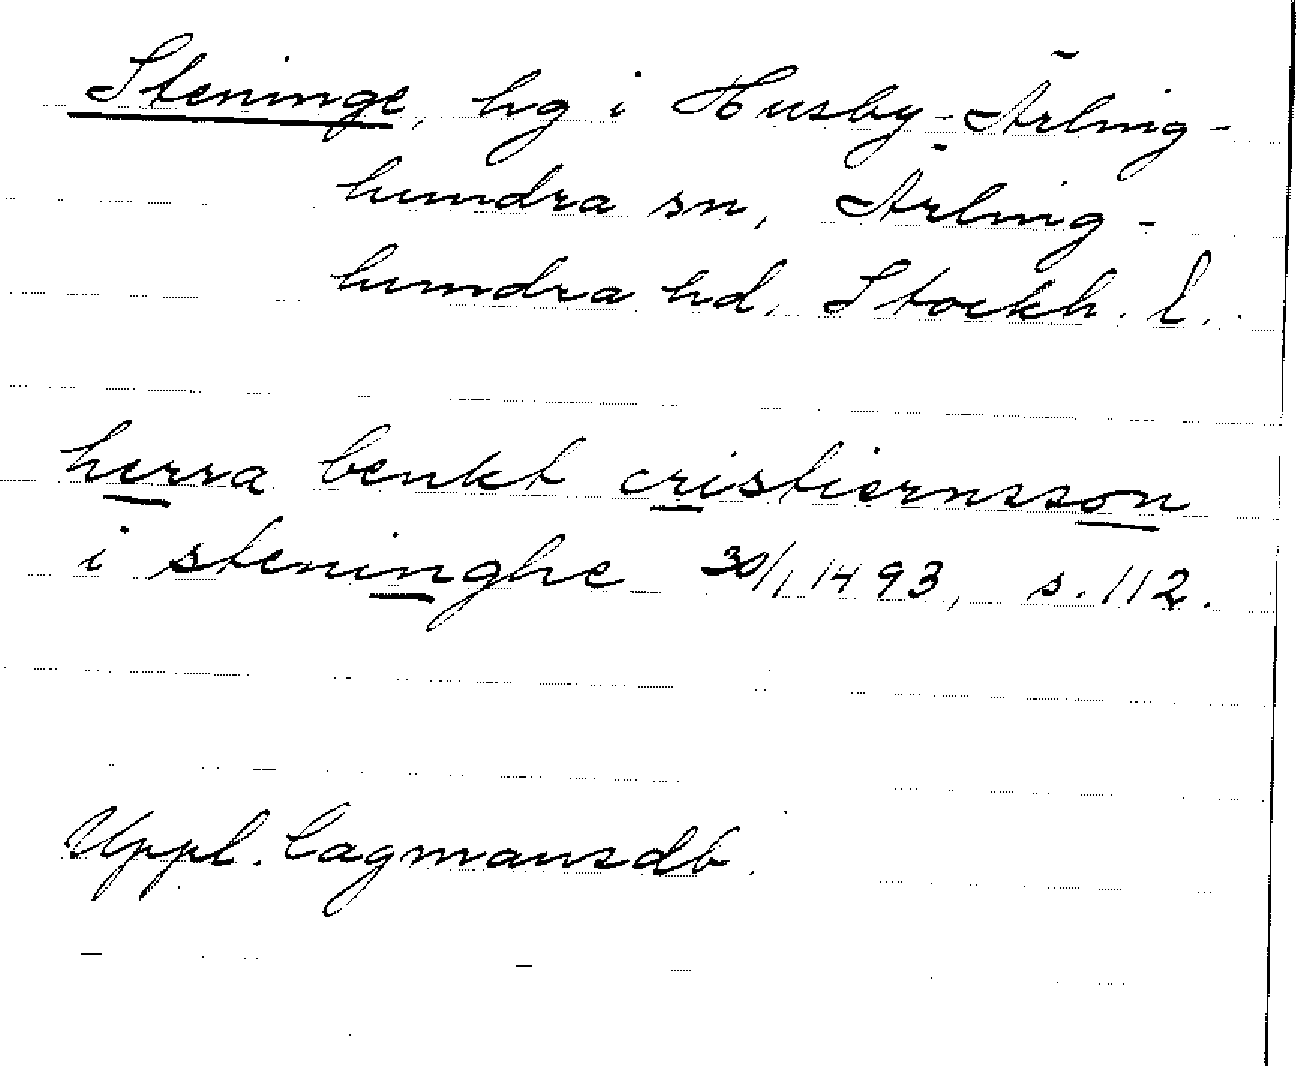 Steninge, hg i Husby-Ärling-
hundra sn, Ärling-
hundra hd, Stockh. l.
herra benkt cristiernsson
i steninghe 30/1 1493, s. 112.
Uppl. lagmansdb.